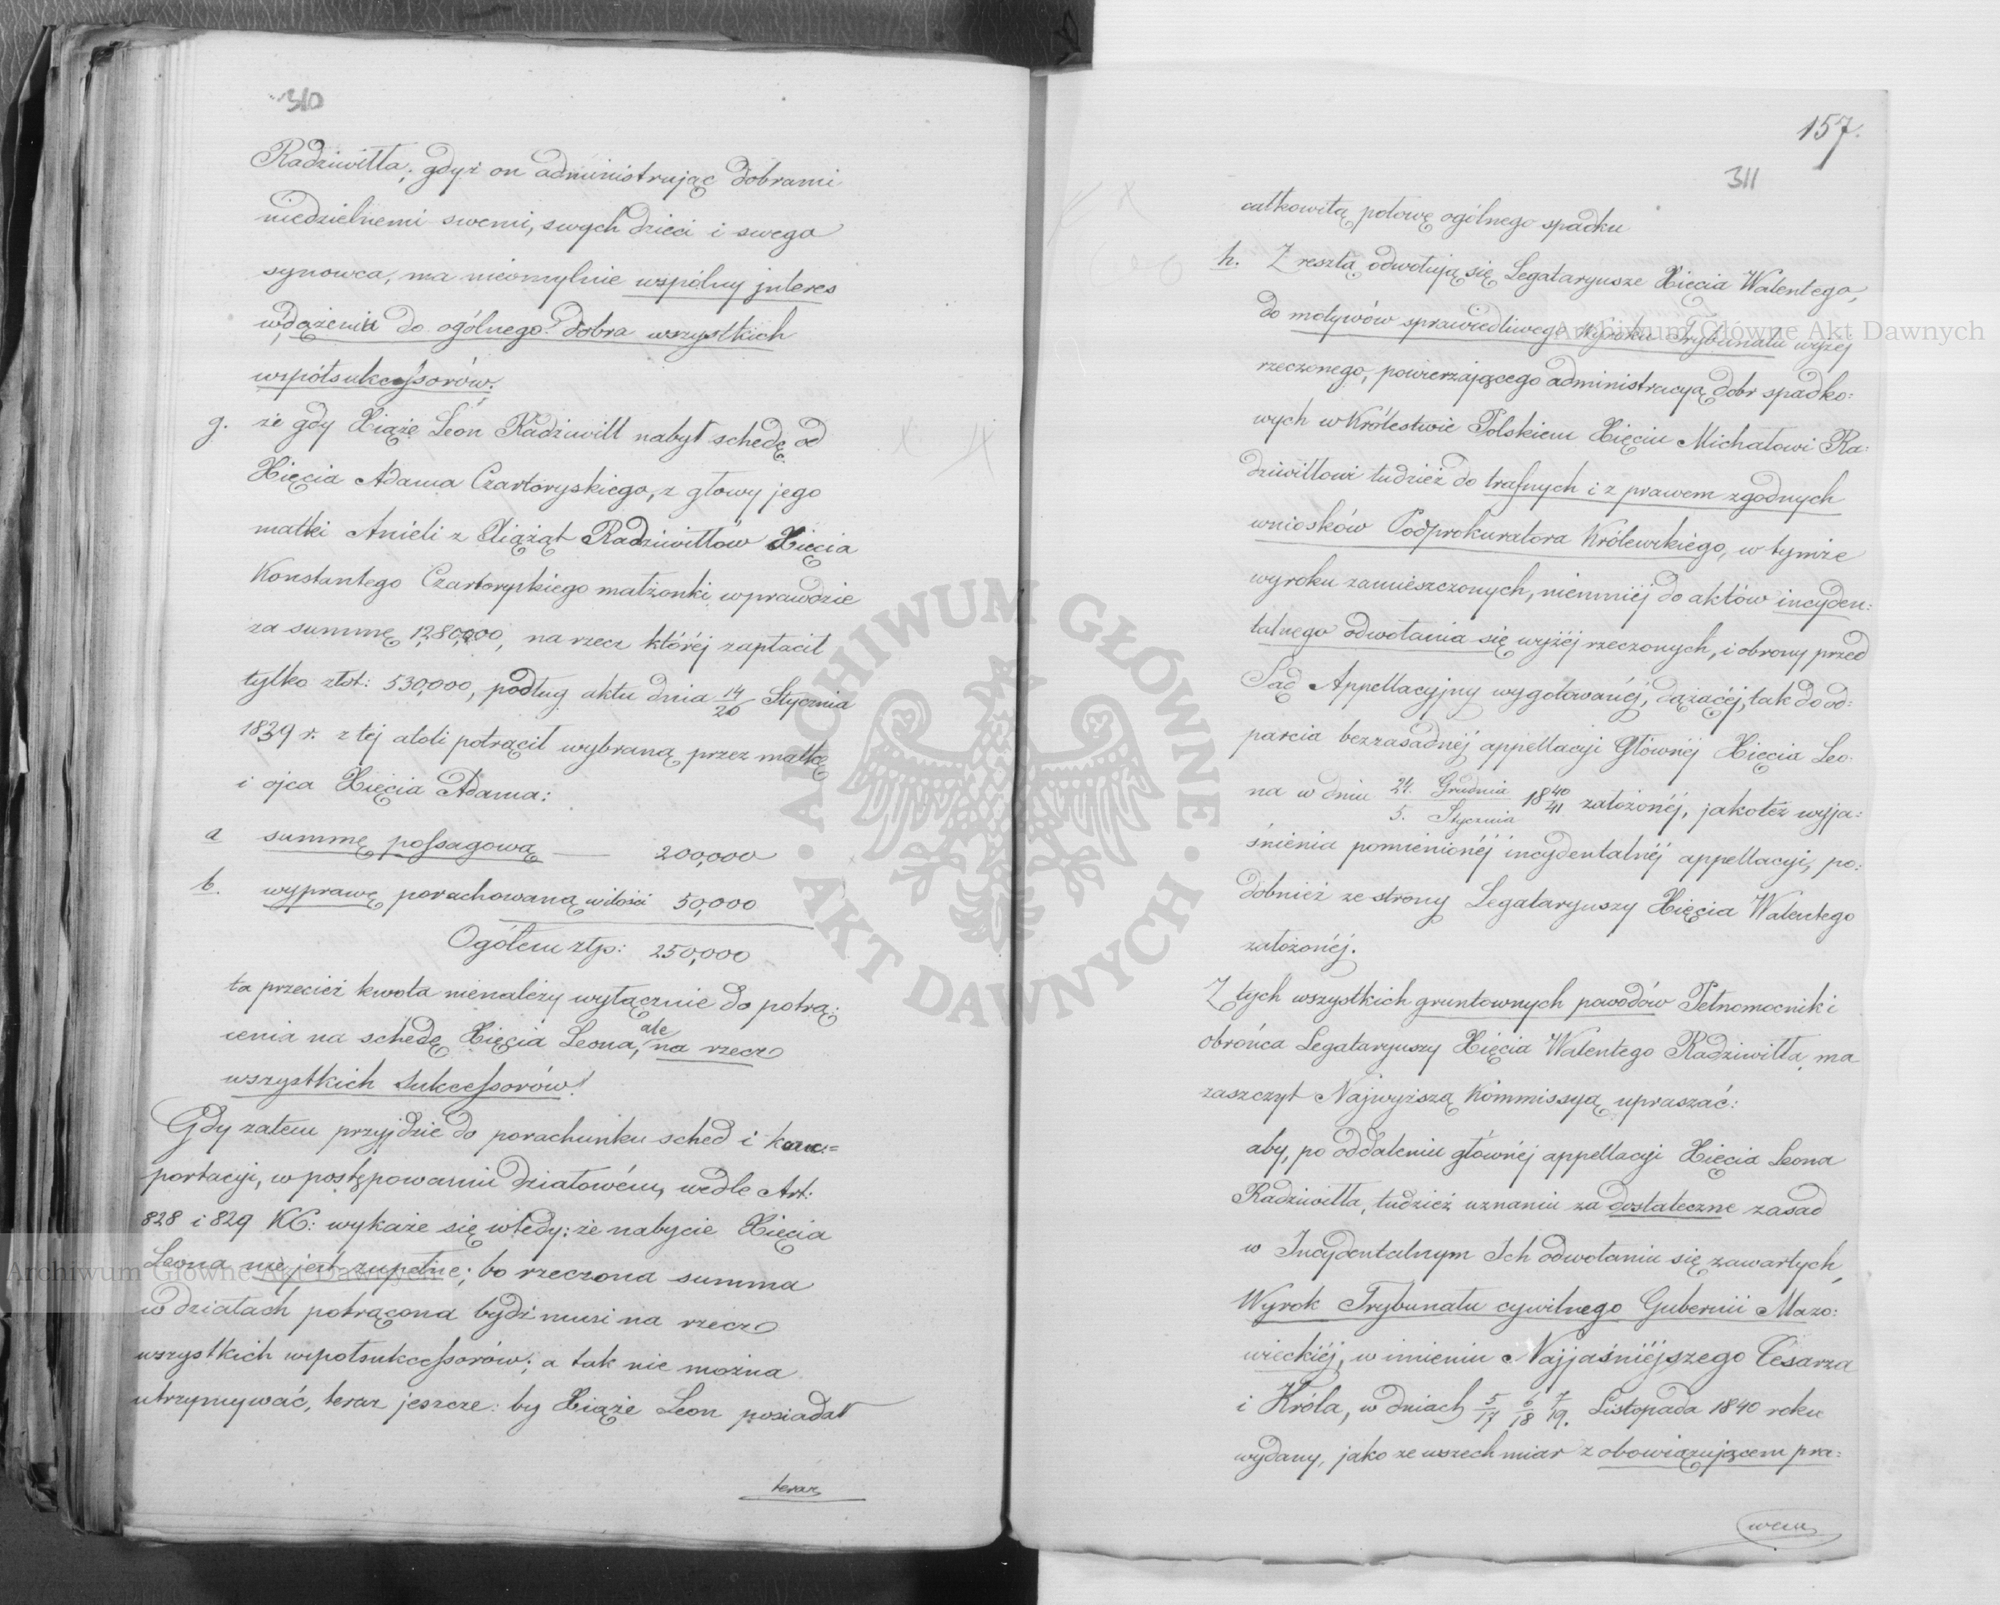 310
Radziwiłła; gdyż on administrując dobrami
niedzielnemi swemi, swych dzieci i swego
synowca, ma nieomylnie wspólny interes
w dążeniu do ogólnego dobra wszystkich
współsukcessorów.
g. że gdy Xiąże Leon Radziwiłł nabył schedę od
Xięcia Adama Czartoryskiego, z głowy jego
matki Anieli z Xiążąt Radziwiłłów Xięcia
Konstantego Czartoryskiego małżonki wprawdzie
za summę 1,280,000, na rzecz któréj zapłacił
tylko złot: 530,000, podług aktu dnia 14/26 Stycznia
1839 r. z tej atoli potrącił wybraną przez matkę
i ojca Xięcia Adama:
a summę possagową — 200,000
b. wyprawę porachowaną w ilości 50,000
Ogółem złp: 250,000
ta przecież kwota nienależy wyłącznie do potrą:
cenia na schedę Xięcia Leona, ale na rzecz
wszystkich sukcessorów!
Gdy zatem przyjdzie do porachunku sched i kom=
portacyi, w postępowaniu działowém, wedle Art:
828 i 829 KC: wykaże się wtedy: że nabycie Xięcia
Leona nie jest zupełne; bo rzeczona summa
w działach potrącona bydź musi na rzecz
wszystkich współsukcessorów; a tak nie można
utrzymywać, teraz jeszcze: by Xiąże Leon posiadał
teraz
157.
311
całkowitą połowę ogólnego spadku
h. Z resztą odwołują się Legataryusze Xięcia Walentego,
do motywów sprawiedliwego Wyroku Trybunału wyżej
rzeczonego, powierzającego administracyą dobr spadko:
wych w Królestwie Polskiem Xięciu Michałowi Ra:
dziwiłłowi tudzież do trafnych i z prawem zgodnych
wniosków Podprokuratora Królewskiego, w tymże
wyroku zamieszczonych, niemniéj do aktów incyden:
talnego odwołania się wyżéj rzeczonych, i obrony przed
Sąd Appellacyjny wygotowanéj, dążącéj, tak do od:
parcia bezzasadnéj appellacyi Głównéj Xięcia Leo:
na w dniu 24. Grudnia / 5. Stycznia 1840/41 założonéj, jakoteż wyja:
śnienia pomienionéj incydentalnéj appellacyi, po:
dobnież ze strony Legataryuszy Xięcia Walentego
założonéj.
Z tych wszystkich gruntownych powodów Pełnomocnik i
obrońca Legataryuszy Xięcia Walentego Radziwiłła, ma
zaszczyt Najwyższą Kommissyą upraszać:
aby, po oddaleniu głównéj appellacyi Xięcia Leona
Radziwiłła, tudzież uznaniu za dostateczne zasad
w Incydentalnym Ich odwołaniu się zawartych,
Wyrok Trybunału cywilnego Gubernii Mazo:
wieckiéj, w imieniu Najjaśniéjszego Cesarza
i Króla, w dniach 5/17 6/18 7/19. Listopada 1840 roku
wydany, jako ze wszech miar z obowiązującem pra:
wem
Archiwum Główne Akt Dawnych
Archiwum Główne Akt Dawnych
ARCHIWUM GŁÓWNE · AKT DAWNYCH ·